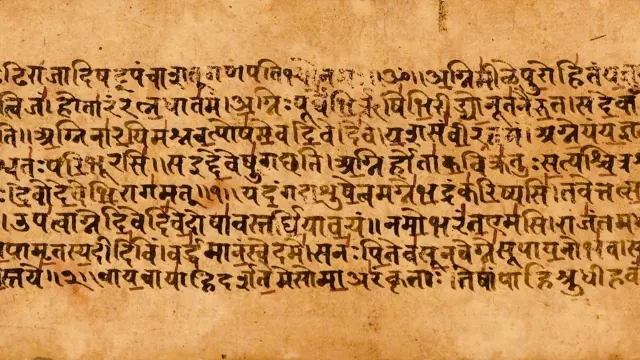 ॥ॐ॥अग्निमीळेपुरोहितंयज्ञ
त्विजं।होतारंरत्नधातमं।अग्निःपूर्वेभिर्ऋषिभिरीड्योनूतनैरुत।सदेवाँ
ति॥अग्निनारयिमश्नवत्पोषमेवदिवेदिवे।यशसंवीरवत्तमं।अग्नेयंयज्ञ
श्वतःपरिभूरसि॥सइद्देवेषुगच्छति।अग्निर्होताकविक्रतुःसत्यश्चित्र
देवोदेवेभिरागमत्॥१॥यदंगदाशुषेत्वमग्नेभद्रंकरिष्यसि।तवेत्तत्स
।उपत्वाग्नेदिवेदिवेदोषावस्तर्धियावयं॥नमोभरंतएमसि।राजंतम
पामृतस्यदीदिविं।वर्द्धमानंस्वेदमे।सनःपितेवसूनवेग्नेसूपायनोभव।
स्तये॥२॥वायवायाहिदर्शतेमेसोमाअरंकृताः।तेषांपाहिश्रुधीहवं